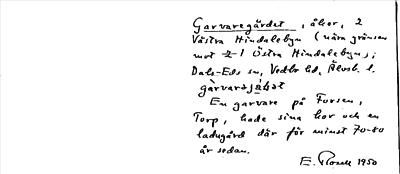 Garvaregärdet, åker, 2
Västra Hindalebyn (nära gränsen
mot 2-1 Östra Hindalebyn);
Dals-Eds sn, Vedbo hd, Älvsb. l.
garvarəjäɫət
En garvare på Forsen,
Torp, hade sina hor och en
ladugård där för minst 70-80
år sedan.
E. Rosell 1950